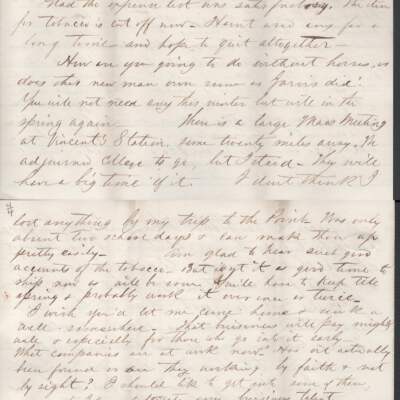 Glad the expense list was satisfactory. The item
for tobacco is cut off now – Havnt used any for a
long time and hope to quit altogether.
How are you going to do without horses, or
does this new man own some as Jarvis did?
You will not need any this winter but will in the
spring again. There is a large Mass Meeting
at Vincent's Station, some twenty miles away. The
adjourned College to go, but I staid – They will
have a big time of it. I don't think I
lost anything by my trip to the Was only
absent two school days & can make them up
pretty easily – Am glad to hear such good
accounts of the tobacco. But isn't it as good time to
ship now as will be soon & will have to keep till
spring & probably work it over once or twice.
I wish you'd let me come home & sink a
well somewhere – That business will pay mighty
well & especially for those who go into it early.
What companies are at work now? Has oil actually
been found or are they working by faith & not
by sight? I should like to get into some of them,